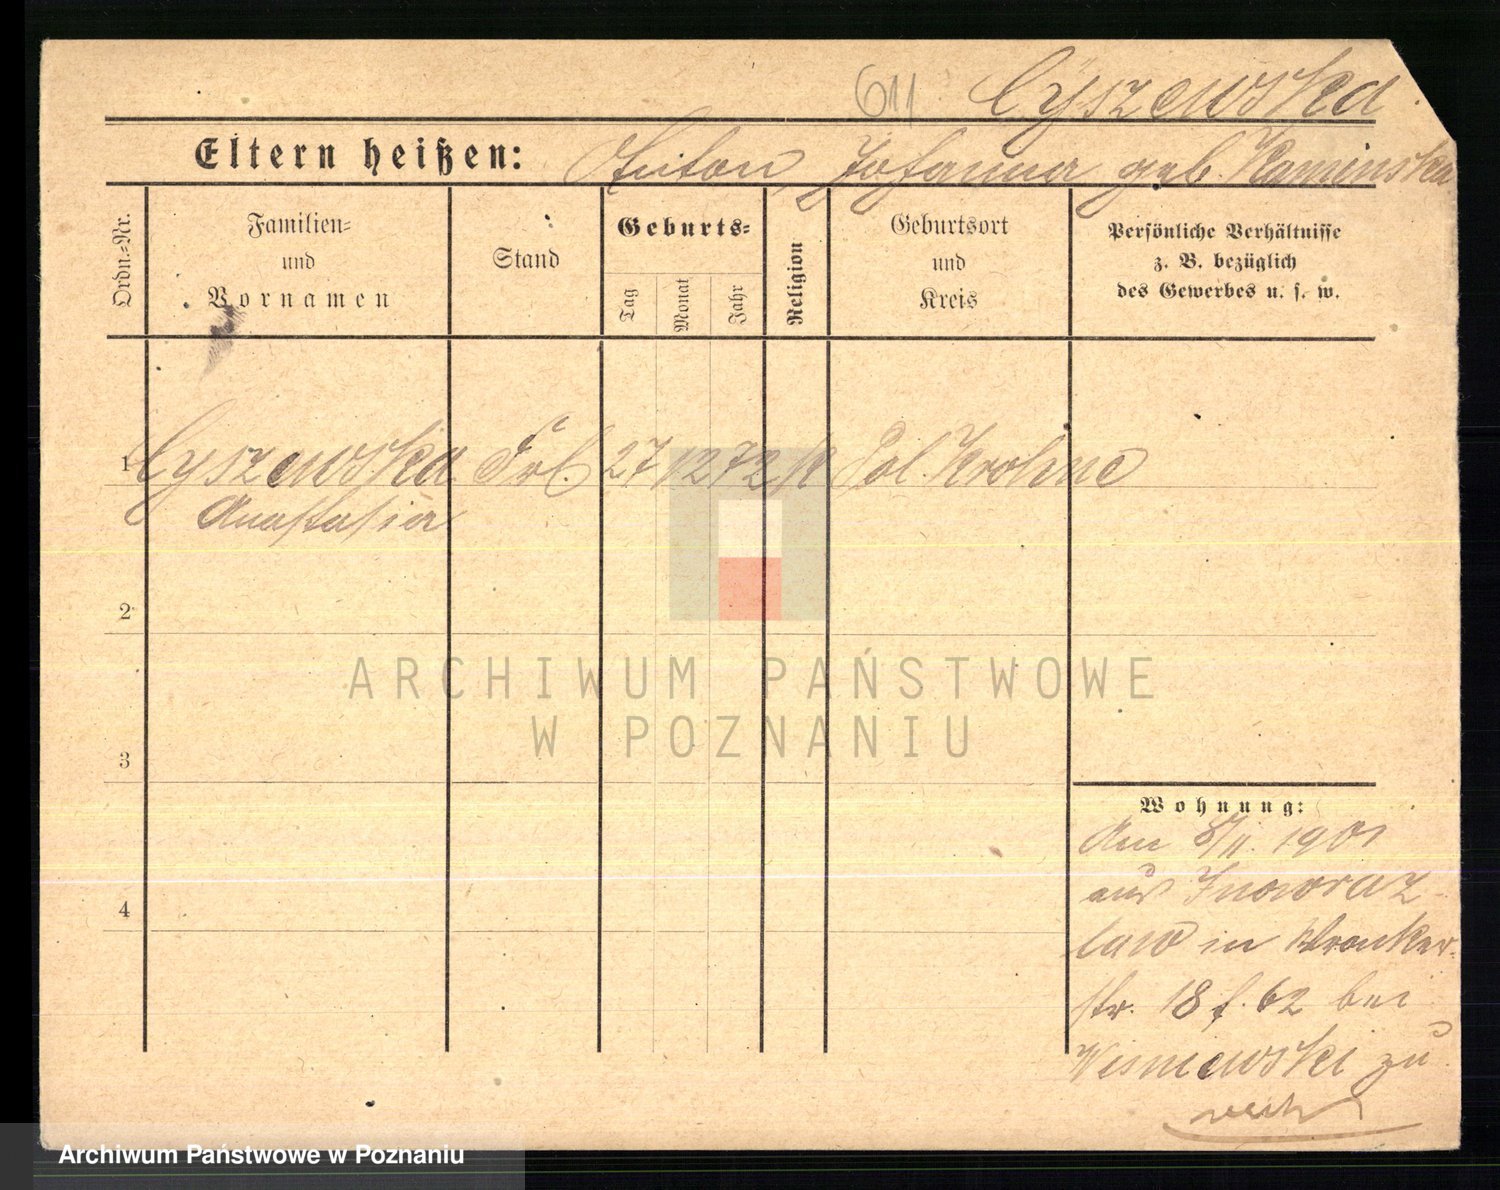 611 Cyszewska
Eltern heißen: Anton, Johanna geb. Kaminska
Ordn.-Nr.
Familien-
und
Vornamen
Stand
Geburts-
Tag
Monat
Jahr
Religion
Geburtsort
und
Kreis
Persönliche Verhältnisse
z. B. bezüglich
des Gewerbes u. s. w.
1 Cyszewska Frl. 27 12 72 k Pol. Krohne
Anastasia
2
ARCHIWUM PAŃSTWOWE
W POZNANIU
3
Wohnung:
Am 8/11. 1901
aus Inowraz-
law in Wronker-
str. 18 f. 62 bei
Wisniewski zu
4
Archiwum Państwowe w Poznaniu